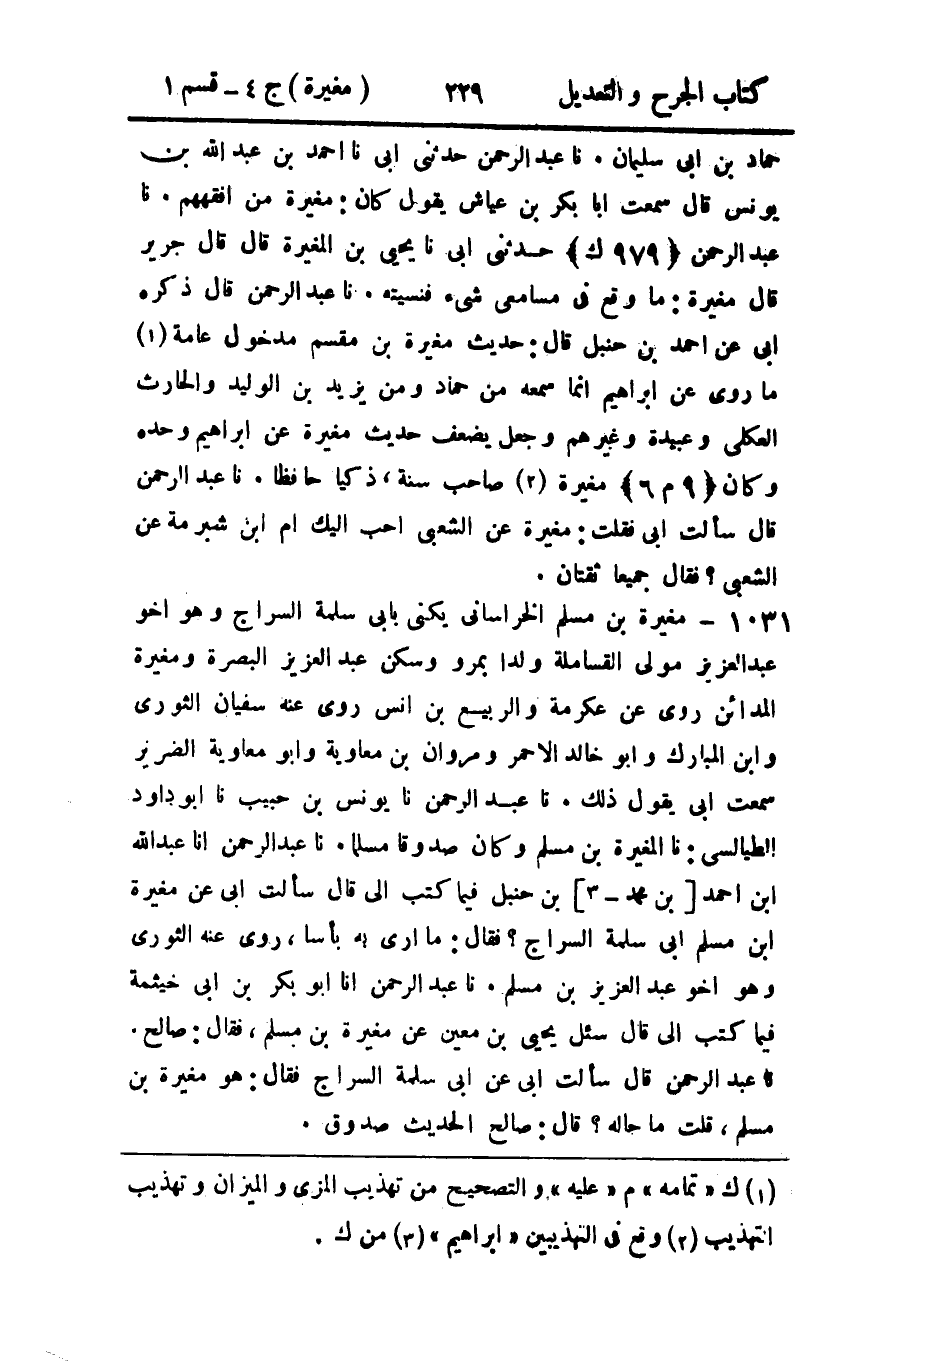 كتاب الجرح والتعديل ٢٢٩ (مغيرة) ج ٤ - قسم ١
حماد بن ابى سليمان . نا عبد الرحمن حدثنى ابى نا احمد بن عبد الله بن
يونس قال سمعت ابا بكر بن عياش يقول كان : مغيرة من افقههم . نا
عبد الرحمن ﴿٩٧٩ ك﴾ حدثنى ابى نا يحيى بن المغيرة قال قال جرير
قال مغيرة : ما وقع فى مسامعى شىء فنسيته . نا عبد الرحمن قال ذكره
ابى عن احمد بن حنبل قال : حديث مغيرة بن مقسم مدخول عامة (١)
ما روى عن ابراهيم انما سمعه من حماد ومن يزيد بن الوليد والحارث
العكلى وعبيدة وغيرهم وجعل يضعف حديث مغيرة عن ابراهيم وحده
وكان ﴿٩ م ٦﴾ مغيرة (٢) صاحب سنة ، ذكيا حافظا . نا عبد الرحمن
قال سألت ابى فقلت : مغيرة عن الشعبى احب اليك ام ابن شبرمة عن
الشعبى ؟ فقال جميعا ثقتان .
١٠٣١ - مغيرة بن مسلم الخراسانى يكنى بابى سلمة السراج وهو اخو
عبد العزيز مولى القساملة ولدا بمرو وسكن عبد العزيز البصرة ومغيرة
المدائن روى عن عكرمة والربيع بن انس روى عنه سفيان الثورى
وابن المبارك وابو خالد الاحمر ومروان بن معاوية وابو معاوية الضرير
سمعت ابى يقول ذلك . نا عبد الرحمن نا يونس بن حبيب نا ابو داود
الطيالسى : نا المغيرة بن مسلم وكان صدوقا مسلما . نا عبد الرحمن انا عبد الله
ابن احمد [ بن محمد - ٣] بن حنبل فيما كتب الى قال سألت ابى عن مغيرة
ابن مسلم ابى سلمة السراج ؟ فقال : ما ارى به بأسا ، روى عنه الثورى
وهو اخو عبد العزيز بن مسلم . نا عبد الرحمن انا ابو بكر بن ابى خيثمة
فيما كتب الى قال سئل يحيى بن معين عن مغيرة بن مسلم ، فقال : صالح .
نا عبد الرحمن قال سألت ابى عن ابى سلمة السراج فقال : هو مغيرة بن
مسلم ، قلت ما حاله ؟ قال : صالح الحديث صدوق .
(١) ك « تمامه » م « عليه » والتصحيح من تهذيب المزى والميزان وتهذيب
التهذيب (٢) وقع فى التهذيبين « ابراهيم » (٣) من ك .